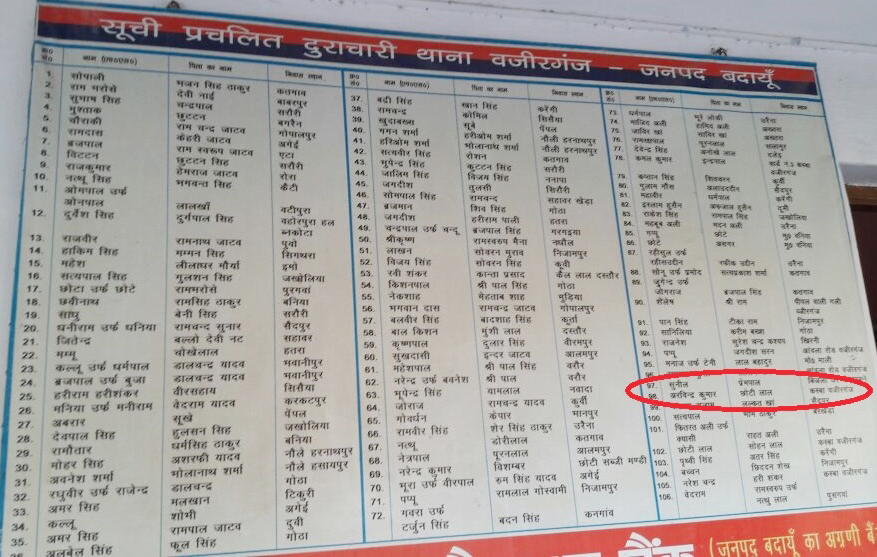 सूची प्रचलित दुराचारी थाना वजीरगंज – जनपद बदायूँ
क्र० सं० नाम (एम०एस०) पिता का नाम निवास स्थान
1. सोपाली भजन सिंह ठाकुर कतगाव
2. राम भरोसे देवी नाई बाबरपुर
3. सुभाम सिंह चन्द्रपाल सरौरी
4. मुश्ताक छुटटन बगरैन
5. चौराकी राम चन्द्र जाटव गोपालपुर
6. रामदास केहरी जाटव अगेई
7. ब्रजपाल राम स्वरूप जाटव एटा
8. छुटटन सिंह सरौरी
9. राजकुमार हेमराज जाटव रोस
10. नत्थू सिंह भगवन्त सिंह कैटी
11. ओमपाल उर्फ
ओनपाल लालखॉ वटीपुरा
12. दुर्वेश सिंह दुर्गपाल सिंह वहोरपुर हल
13. राजवीर रामनाथ जाटव पुवो
14. हाकिम सिंह गम्मन सिंह सिगथरा
15. महेश लीलाधर मौर्या
16. सत्यपाल सिंह गुलशन सिंह जखोलिया
17. छोटा उर्फ छोटे रामभरोसे पुरगवां
18. छवीनाथ रामसिंह ठाकुर बनिया
19. साधु बेनी सिंह सरौरी
20. धनीराम उर्फ धनिया रामचन्द्र सुनार सैदपुर
21. जितेन्द्र बल्लो देवी नट सहावर
22. मम्मू चोखेलाल हतरा
23. कल्लू उर्फ धर्मपाल डालचन्द्र यादव भवानीपुर
24. ब्रजपाल उर्फ बुजा डालचन्द्र यादव भवानीपुर
25. हरीराम हरीशंकर वीरसहाय सिसैया
26. मनिया उर्फ मनीराम वेदराम यादव करकटपुर
27. अबरार सूखे पेंपल
28. देवपाल सिंह हुलसन सिंह जखोलिया
29. रामौतार धर्मसिंह ठाकुर बनिया
30. मोहर सिंह अशरफी यादव नौले हरनाथपुर
31. अवनेश शर्मा भोलानाथ शर्मा नौले हसायपुर
32. रघुवीर उर्फ राजेन्द्र डालचन्द्र गोठा
33. अमर सिंह मलखान टिकुरी
34. कल्लू शोभी अगेई
35. अमर सिंह रामपाल जाटव दुवी
36. अलबेल सिंह फूल सिंह गोठा
क्र० सं० नाम (एम०एस०) पिता का नाम निवास स्थान
37. बद्री सिंह खान सिंह करेंगी
38. रामचन्द्र कोमिल सिसैया
39. खुदाबख्स सूबे पेंपल
40. गगन शर्मा हरीओम शर्मा नौली हरनाथपुर
41. हरिओम शर्मा भोलानाथ शर्मा नौली हरनाथपुर
42. सत्यवीर सिंह रोशन कतगाव
43. भूपेन्द्र सिंह कुटटन सिंह सरौरी
44. जालिम सिंह विजय सिंह ननापा
45. जगदीश तुलसी सिरौरी
46. सोमपाल सिंह रामचन्द्र सहावर खेड़ा
47. ब्रजभान शिव सिंह गोठा
48. जगदीश हरीराम पाली हतरा
49. चन्द्रपाल उर्फ चन्दू ब्रजपाल गरगइया
50. श्रीकृष्ण रामस्वरुप मैना नघौल
51. लाखन सोवरन मुराव निजामपुर
52. विजय सिंह सोवरन सिंह कुर्वी
53. रवी शंकर कान्ता प्रसाद कैल लाल दस्तौर
54. किशनपाल श्री पाल सिंह गोठा
55. नेकशाह मेहताब शाह मुड़िया
56. भगवान दास रामचन्द्र जाटव गोपालपुर
57. बलवीर सिंह बादशाह सिंह कुर्ता
58. बाल किशन मुंशी लाल दस्तौर
59. कृष्णपाल दुलार सिंह वीरमपुर
60. सुखदासी इन्दर जाटव आलमपुर
61. महेशपाल श्री पाल सिंह वरौर
62. नरेन्द्र उर्फ बवनेश श्री पाल वरौर
63. भूपेन्द्र सिंह यामलाल नवादा
64. जोराज रामचन्द्र यादव कुर्वी
65. गोवर्धन केपार मानपुर
66. रामवीर सिंह शेर सिंह ठाकुर उरैना
67. नत्थू डोरीलाल कतगाव
68. नेत्रपाल पूरनलाल आलमपुर
69. नरेन्द्र कुमार विशम्बर छोटी सब्जी मण्डी
70. भूरा उर्फ वीरपाल रूम सिंह यादव अगेई
71. पप्पू रामलाल गोस्वामी निजामपुर
72. गवरा उर्फ
टर्जुन सिंह बदन सिंह कनगांव
क्र० सं० नाम (एम०एस०) पिता का नाम निवास स्थान
73. धर्मपाल भूरे लोधी उरैना
74. माजिद अली हामिद अली
75. जाविर खां साविर खां
76. रामरक्षपाल पूरनलाल
77. देवेन्द्र सिंह अनोखे लाल
78. कमल कुमार इन्द्रपाल वार्ड नं.5 कस्बा
वजीरगंज
79. कप्तान सिंह शिवचरन कुर्वी
80. गुलाम गौस अलाउददीन सैदपुर
81. महावीर धर्मपाल करेंगी
82. इसलाम हुसैन अफजाल हुसैन
83. राकेश सिंह रामपाल सिंह जखोलिया
84. महबूब अली मदन अली उरैना
85. गप्पू छोटे
86. छोटे असगर
87. रहीसुल उर्फ
रहीसउददीन रफीक उद्दीन उरैना
88. सोनू उर्फ प्रमोद सत्यप्रकाश शर्मा कतगाव
89. जुगेन्द्र उर्फ
जोगराज ब्रजपाल सिंह कतगाव
90. शैलेष श्री राम पीपल वाली गली
वजीरगंज
91. पान सिंह टीका राम निजामपुर
92. साबिलिया करीम बख्श गोठा
93. राजनेश सुरेश चन्द्र कश्यप खिरनी
94. पप्पू जगदीश सरन आंवला रोड वजीरगंज
95. मनोज उर्फ टेनी लाल बहादुर
97. सुनील प्रेमपाल
98. अरविन्द कुमार छोटी लाल कस्बा वजीरगंज
99. सैदपुर
100. सत्यपाल भीम ठाकुर बरखेड़ा
101. कितरत अली उर्फ
क्यासी राहत अली उरैना
102. छोटी लाल सोहन लाल कस्बा वजीरगंज
103. पृथ्वी सिंह अतर सिंह करेंगी
104. बच्चन छिददन शेख निजामपुर
105. नरेश चन्द्र हरी शंकर कस्बा वजीरगंज
106. वेदराम रामस्वरुप उर्फ
नत्थू लाल पुसगवां
बैंक (जनपद बदायूं का अग्रणी बैंक